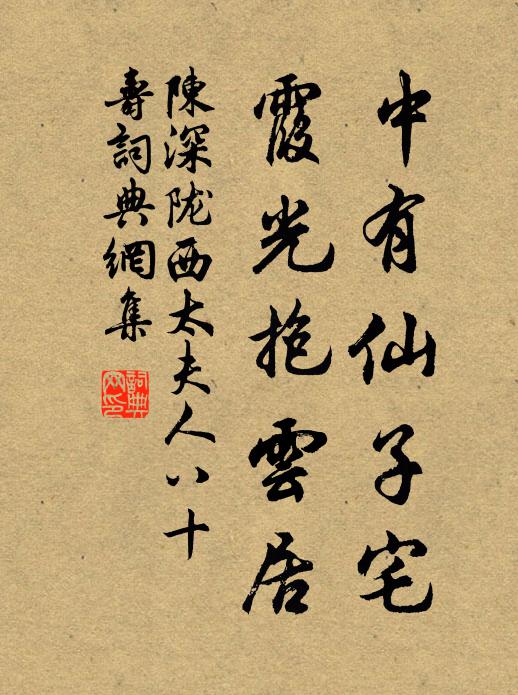 中有仙子宅
霞光抱雲居
陳深陇西太夫人八十
壽詞典網集
詞典網印